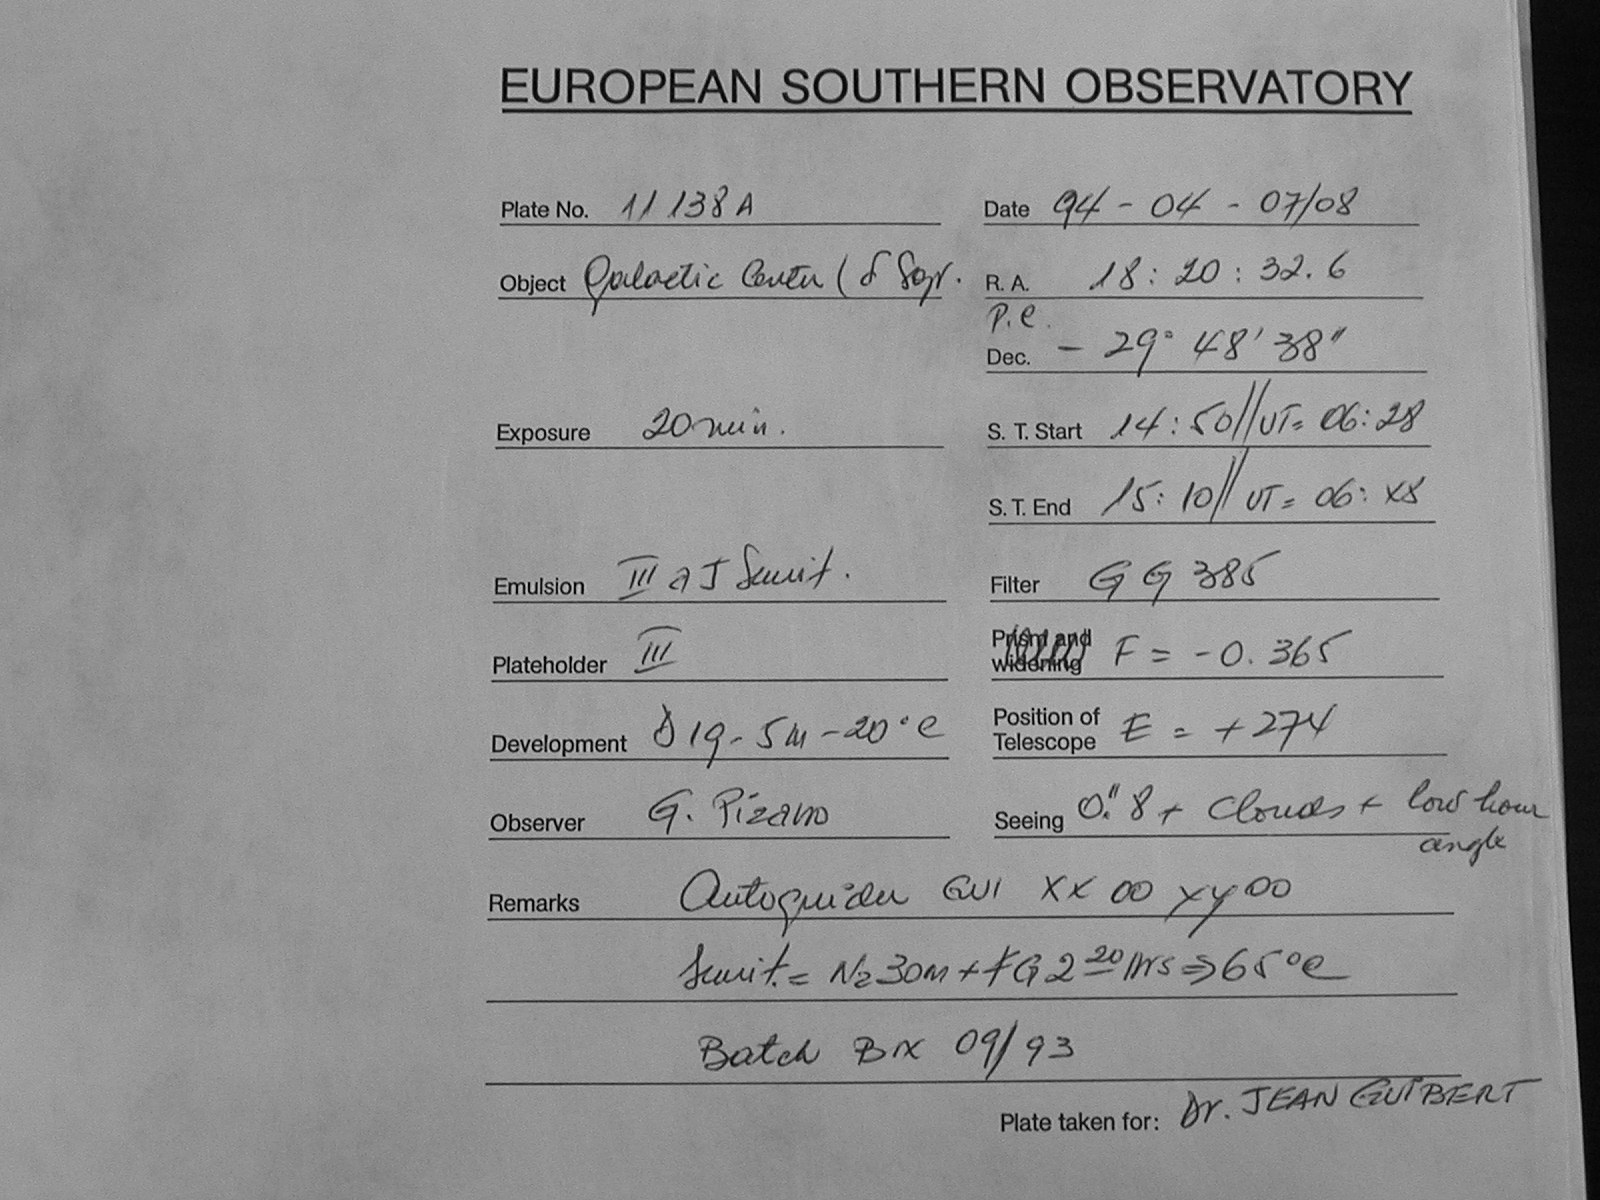 EUROPEAN SOUTHERN OBSERVATORY
Plate No. 11138A Date 94 - 04 - 07/08
Object Galactic Center (δ Sgr. R. A. 18 : 20 : 32.6
P.e.
Dec. - 29° 48' 38"
Exposure 20 min. S. T. Start 14 : 50 // UT= 06:28
S. T. End 15: 10 // UT= 06:
Emulsion III a J Sensit. Filter GG 385
Plateholder III Prism and widening F = - 0.365
Development D19 - 5m - 20°C Position of Telescope E = + 274
Observer G. Pizarro Seeing 0."8 + Clouds + low hour
angle
Remarks Autoguider GUI XX 00 XY 00
Sensit. = N2 30m + FG2 20 Hrs ⇒ 65°C
Batch 09/93
Plate taken for: Dr. JEAN GUIBERT